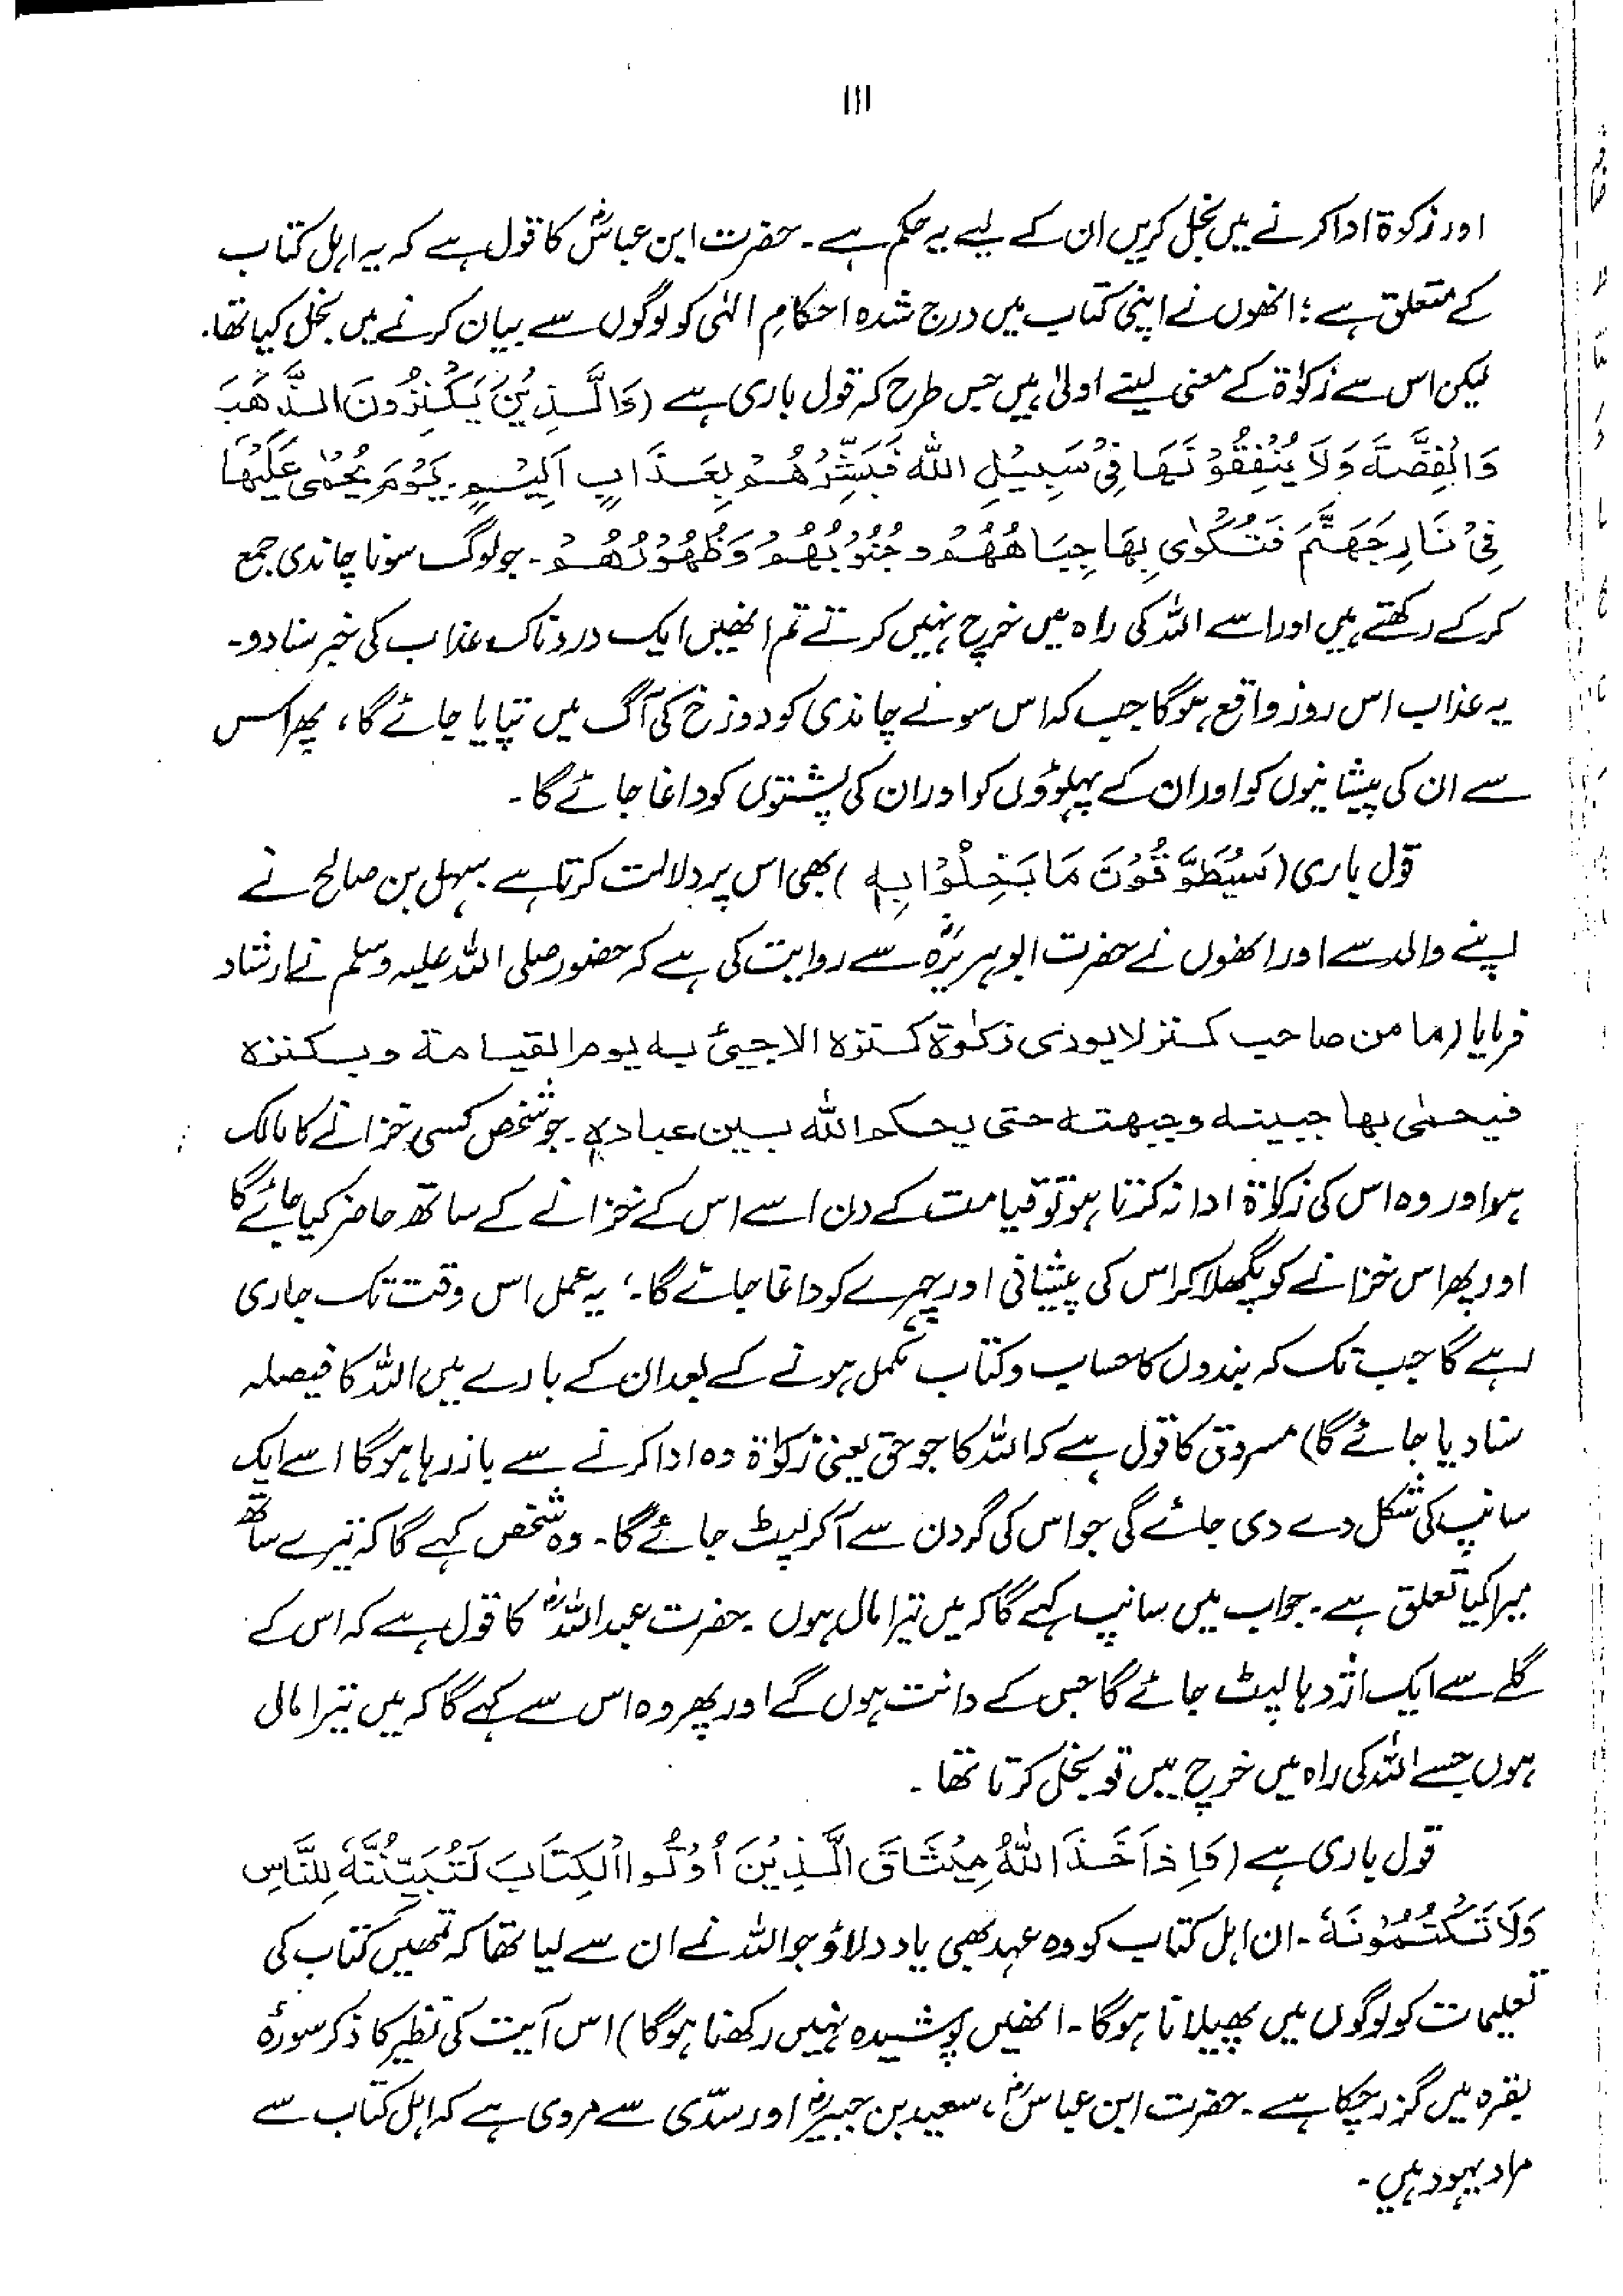 ۱۱۱
اور زکوٰۃ ادا کرنے میں بخل کریں ان کے لیے یہ حکم ہے۔ حضرت ابن عباسؓ کا قول ہے کہ یہ اہل کتاب
کے متعلق ہے؛ انھوں نے اپنی کتاب میں درج شدہ احکامِ الہٰی کو لوگوں سے بیان کرنے میں بخل کیا تھا۔
لیکن اس سے زکوٰۃ کے معنی لینے اولیٰ ہیں جس طرح کہ قول باری ہے (وَالَّذِیْنَ یَکْنِزُوْنَ الذَّھَبَ
وَالْفِضَّۃَ وَلَا یُنْفِقُوْنَھَا فِیْ سَبِیْلِ اللّٰہِ فَبَشِّرْھُمْ بِعَذَابٍ اَلِیْمٍ۔ یَوْمَ یُحْمٰی عَلَیْھَا
فِیْ نَارِ جَھَنَّمَ فَتُکْوٰی بِھَا جِبَاھُھُمْ وجُنُوْبُھُمْ وَظُھُوْرُھُمْ۔ جو لوگ سونا چاندی جمع
کر کے رکھتے ہیں اور اسے اللہ کی راہ میں خرچ نہیں کرتے تم انھیں ایک دردناک عذاب کی خبر سنا دو۔
یہ عذاب اس روز واقع ہوگا جب کہ اس سونے چاندی کو دوزخ کی آگ میں تپایا جائے گا، پھر اس
سے ان کی پیشانیوں کو اور ان کے پہلوؤں کو اور ان کی پشتوں کو داغا جائے گا۔
قول باری (سَیُطَوَّقُوْنَ مَا بَخِلُوْا بِہٖ) بھی اس پر دلالت کرتا ہے سہل بن صالح نے
اپنے والد سے اور انھوں نے حضرت ابوہریرہؓ سے روایت کی ہے کہ حضور صلی اللہ علیہ وسلم نے ارشاد
فرمایا (ما من صاحب کنز لا یودی زکوٰۃ کنزہ الا جیئ بہ یوم القیامۃ وبکنزہ
فیحمٰی بھا جبینہ وجبھتہ حتی یحکم اللہ بین عبادہٖ۔ جو شخص کسی خزانے کا مالک
ہو اور وہ اس کی زکوٰۃ ادا نہ کرتا ہو تو قیامت کے دن اسے اس کے خزانے کے ساتھ حاضر کیا جائے گا
اور پھر اس خزانے کو پگھلا کر اس کی پیشانی اور چہرے کو داغا جائے گا۔؛ یہ عمل اس وقت تک جاری
رہے گا جب تک کہ بندوں کا حساب و کتاب مکمل ہونے کے بعد ان کے بارے میں اللہ کا فیصلہ
سنا دیا جائے گا) مسروق کا قول ہے کہ اللہ کا جو حق یعنی زکوٰۃ وہ ادا کرنے سے باز رہا ہوگا اسے ایک
سانپ کی شکل دے دی جائے گی جو اس کی گردن سے آ کر لپٹ جائے گا۔ وہ شخص کہے گا کہ تیرے ساتھ
میرا کیا تعلق ہے۔ جواب میں سانپ کہے گا کہ میں تیرا مال ہوں۔ حضرت عبداللہؓ کا قول ہے کہ اس کے
گلے سے ایک اژدہا لپٹ جائے گا جس کے دانت ہوں گے اور پھر وہ اس سے کہے گا کہ میں تیرا مال
ہوں جسے اللہ کی راہ میں خرچ میں تو بخل کرتا تھا۔
قول باری ہے (وَاِذَ اَخَذَ اللّٰہُ مِیْثَاقَ الَّذِیْنَ اُوْتُوا الْکِتَابَ لَتُبَیِّنُنَّہٗ لِلنَّاسِ
وَلَا تَکْتُمُوْنَہٗ۔ ان اہل کتاب کو وہ عہد بھی یاد دلاؤ جو اللہ نے ان سے لیا تھا کہ تمھیں کتاب کی
تعلیمات کو لوگوں میں پھیلانا ہوگا۔ انھیں پوشیدہ نہیں رکھنا ہوگا) اس آیت کی نظیر کا ذکر سورۂ
بقرہ میں گزر چکا ہے۔ حضرت ابن عباسؓ، سعید بن جبیرؓ اور سدّی سے مروی ہے کہ اہل کتاب سے
مراد یہود ہیں۔